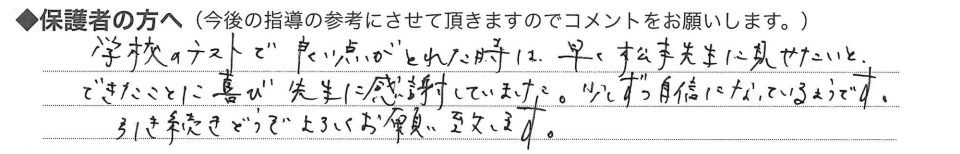 ◆保護者の方へ（今後の指導の参考にさせて頂きますのでコメントをお願いします。）
学校のテストで良い点がとれた時は、早く 先生に見せたいと、
できたことに喜び先生に感謝していました。少しずつ自信になっているようです。
引き続きどうぞよろしくお願い致します。